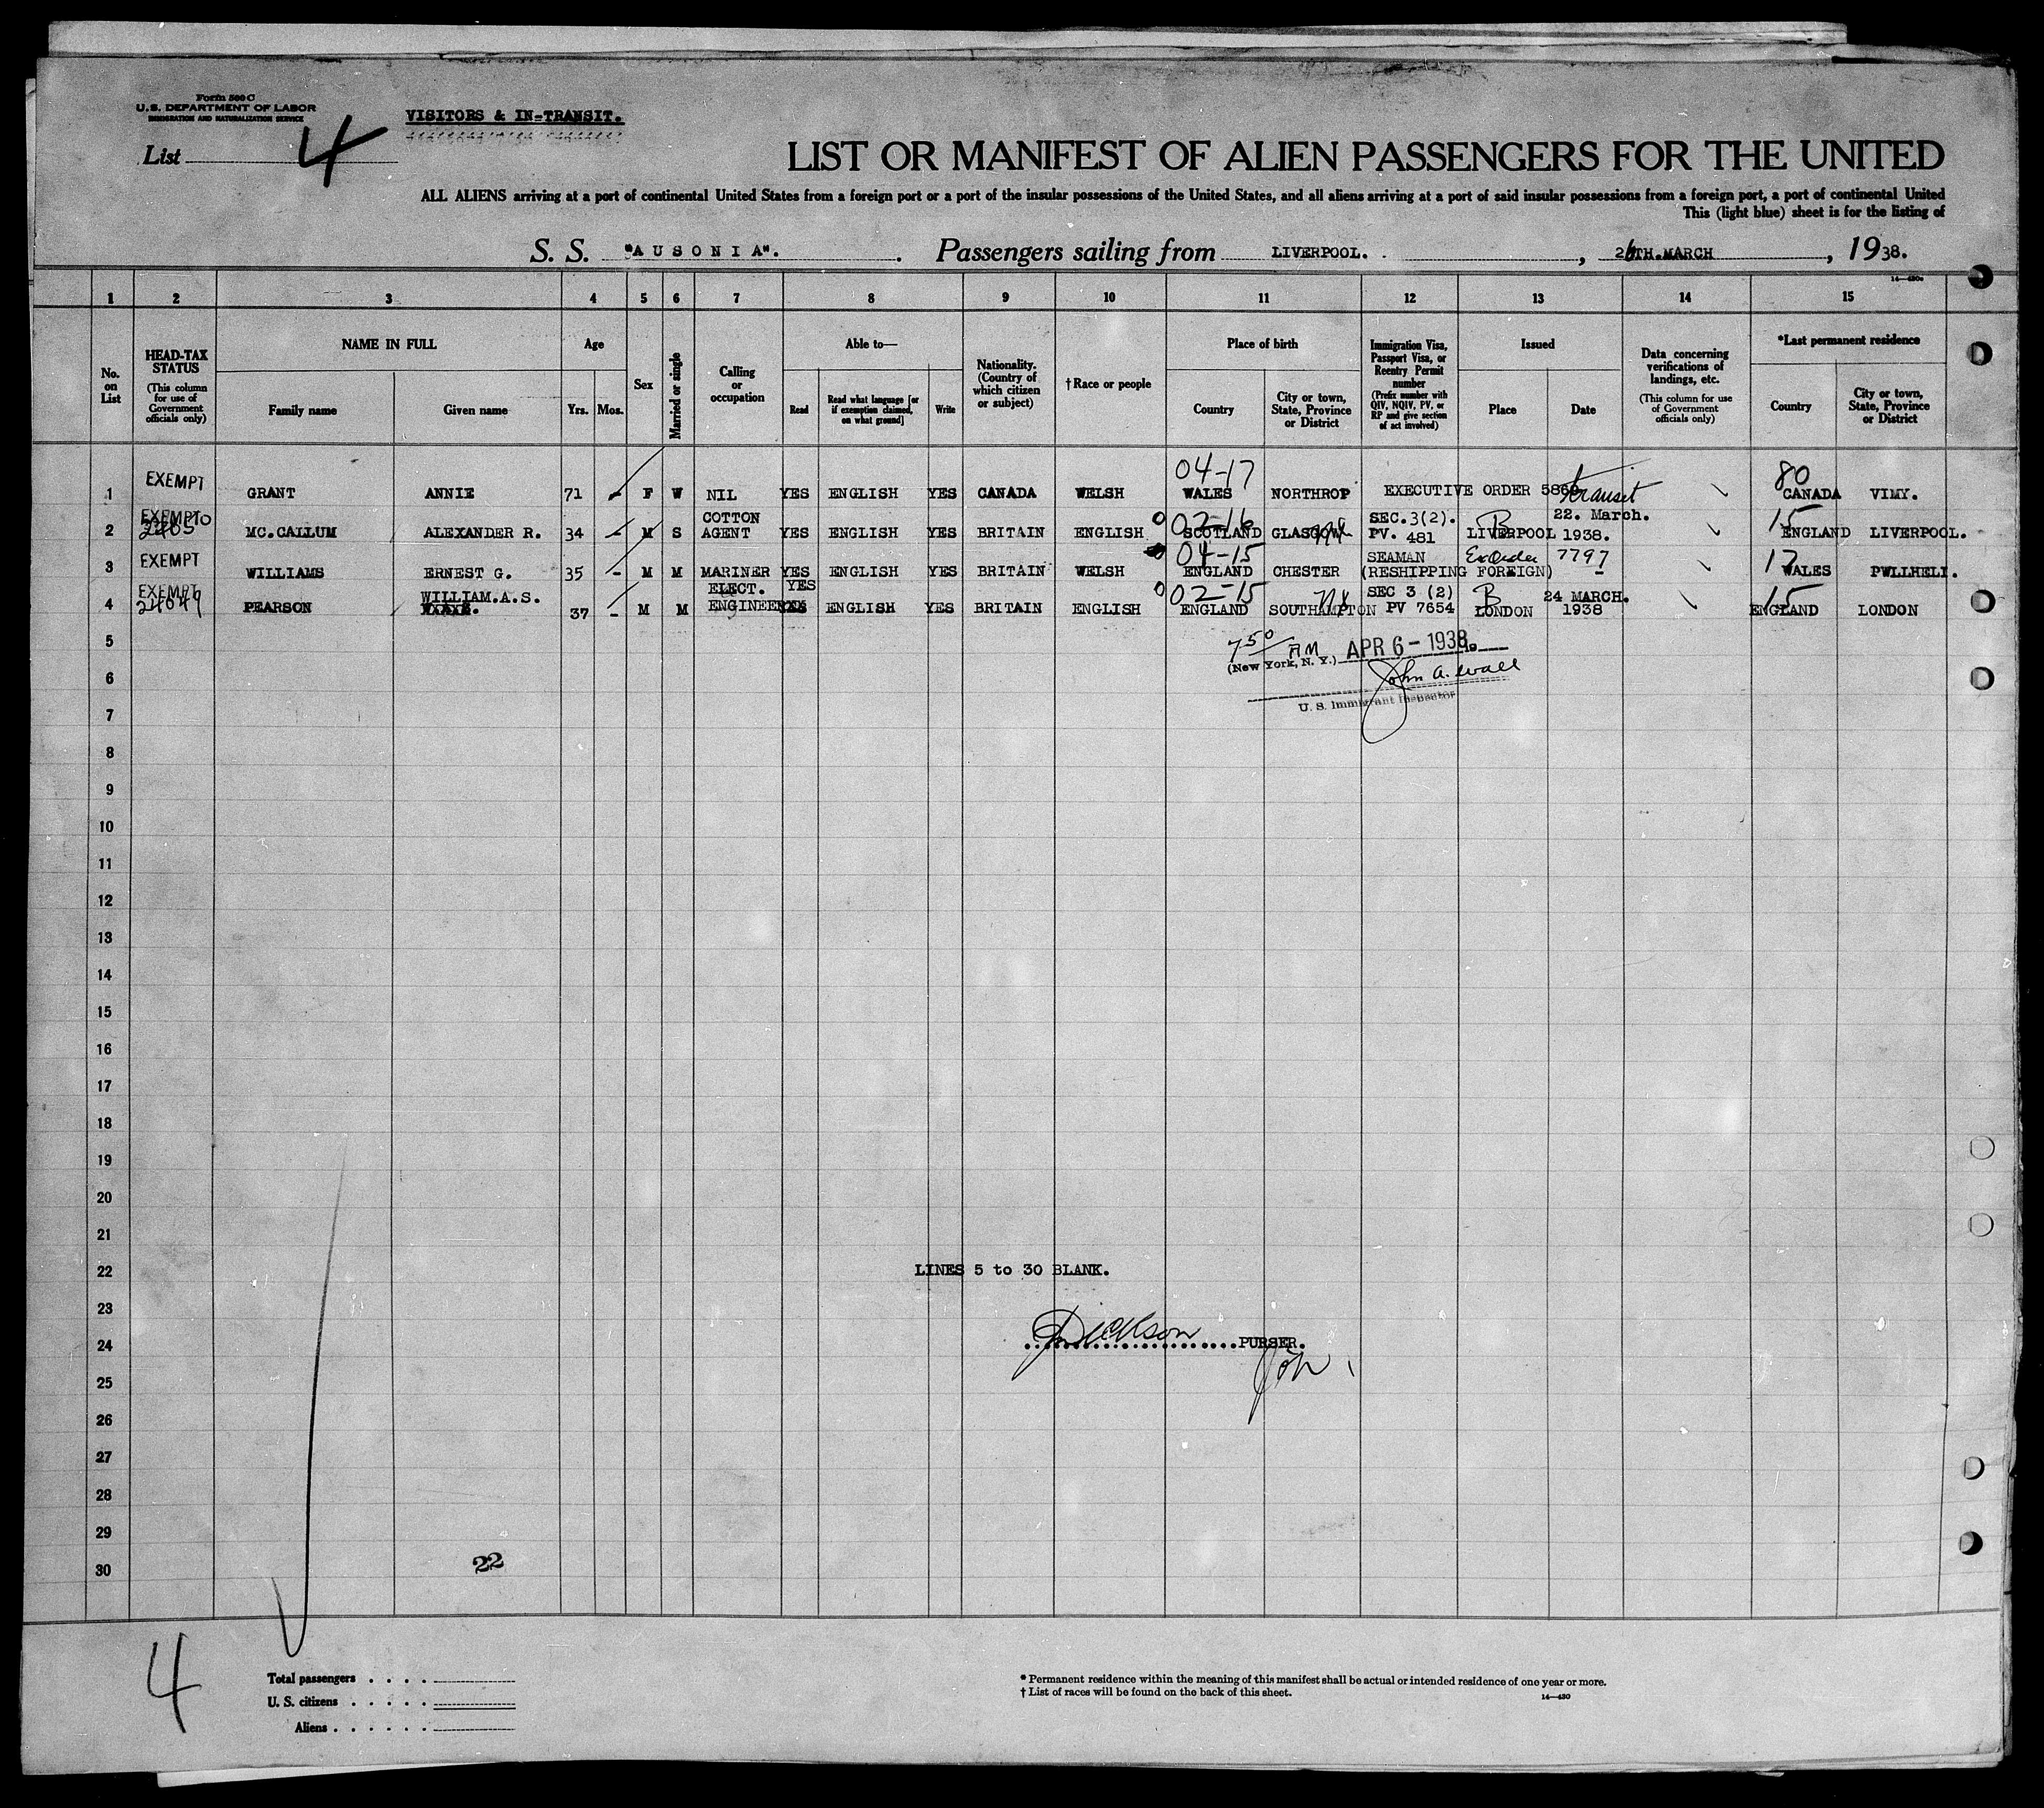 Form 500 C
U.S. DEPARTMENT OF LABOR
IMMIGRATION AND NATURALIZATION SERVICE
VISITORS & IN-TRANSIT.
List 4
LIST OR MANIFEST OF ALIEN PASSENGERS FOR THE UNITED
ALL ALIENS arriving at a port of continental United States from a foreign port or a port of the insular possessions of the United States, and all aliens arriving at a port of said insular possessions from a foreign port, a port of continental United
This (light blue) sheet is for the listing of
S. S. "AUSONIA". Passengers sailing from LIVERPOOL. , 26TH.MARCH , 1938.
1 2 3 4 5 6 7 8 9 10 11 12 13 14 15
No. on List
HEAD-TAX STATUS (This column for use of Government officials only)
NAME IN FULL
Family name Given name
Age
Yrs. Mos.
Sex
Married or single
Calling or occupation
Able to—
Read Read what language [or if exemption claimed, on what ground] Write
Nationality. (Country of which citizen or subject)
†Race or people
Place of birth
Country City or town, State, Province or District
Immigration Visa, Passport Visa, or Reentry Permit number (Prefix number with QIV, NQIV, PV, or RP and give section of act involved)
Issued
Place Date
Data concerning verifications of landings, etc. (This column for use of Government officials only)
*Last permanent residence
Country City or town, State, Province or District
04-17 80
1 EXEMPT GRANT ANNIE 71 - F W NIL YES ENGLISH YES CANADA WELSH WALES NORTHROP EXECUTIVE ORDER 5869 transit CANADA VIMY.
EXEMPT COTTON 02-16 SEC.3(2). B 22. March. 15
2 MC.CALLUM ALEXANDER R. 34 - M S AGENT YES ENGLISH YES BRITAIN ENGLISH SCOTLAND GLASGOW PV. 481 LIVERPOOL 1938. ENGLAND LIVERPOOL.
EXEMPT 04-15 SEAMAN Ex Order 7797 17
3 WILLIAMS ERNEST G. 35 - M M MARINER YES ENGLISH YES BRITAIN WELSH ENGLAND CHESTER (RESHIPPING FOREIGN) - WALES PWLLHELI.
EXEMPT WILLIAM.A.S. ELECT. YES 02-15 SEC 3 (2) B 24 MARCH. 15
4 24049 PEARSON 37 - M M ENGINEER ENGLISH YES BRITAIN ENGLISH ENGLAND SOUTHAMPTON PV 7654 LONDON 1938 ENGLAND LONDON
5
7 50 AM APR 6 - 1938 19
(New York, N. Y.)
6
John A. Wall
7
U. S. Immigrant Inspector
8
9
10
11
12
13
14
15
16
17
18
19
20
21
22 LINES 5 to 30 BLANK.
23
24 Dickson PURSER.
25
26
27
28
29
30
22
4
Total passengers . . . .
U. S. citizens . . . . .
Aliens . . . . . .
* Permanent residence within the meaning of this manifest shall be actual or intended residence of one year or more.
† List of races will be found on the back of this sheet.
14—430